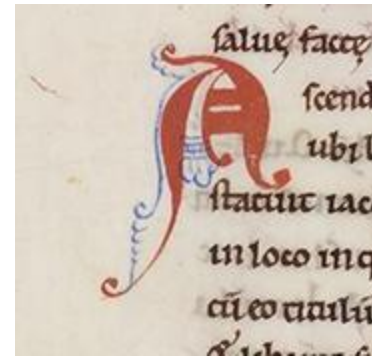 salue facte
Ascend
ubi l
statuit iac
in loco in q
cū eo titulū